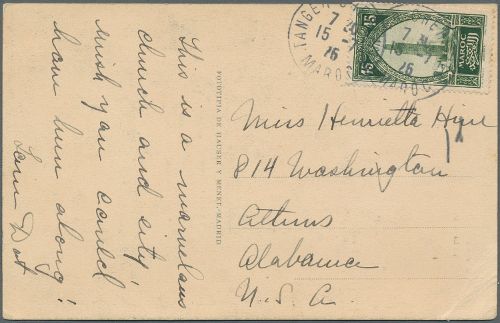 This is a marvelous
church and city!
Wish you could
have been along!
Love Dot
FOTOTIPIA DE HAUSER Y MENET.-MADRID
TANGER
7
15
26
MAROC
15
MAROC
15
7
15
26
MAROC
Miss Henrietta
814 Washington
Athens
Alabama
U.S.A.